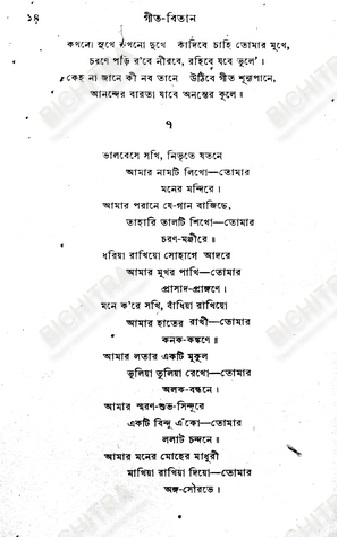 ১৪
গীত-বিতান
কখনো সুখে কখনো দুখে কাঁদিবে চাহি তোমার মুখে,
চরণে পড়ি র'বে নীরবে, রহিবে যবে ভুলে'।
কেহ না জানে কী নব তানে উঠিবে গীত শূন্যপানে,
আনন্দের বারতা যাবে অনন্তের কূলে॥
৭
ভালবেসে সখি, নিভৃতে যতনে
আমার নামটি লিখো—তোমার
মনের মন্দিরে।
আমার পরানে যে-গান বাজিছে,
তাহারি তালটি শিখো—তোমার
চরণ-মঞ্জীরে॥
ধরিয়া রাখিয়ো সোহাগে আদরে
আমার মুখর পাখি—তোমার
প্রাসাদ-প্রাঙ্গণে।
মনে ক'রে সখি, বাঁধিয়া রাখিয়ো
আমার হাতের রাখী—তোমার
কনক-কঙ্কণে॥
আমার লতার একটি মুকুল
ভুলিয়া তুলিয়া রেখো—তোমার
অলক-বন্ধনে।
আমার স্মরণ-শুভ-সিন্দূরে
একটি বিন্দু এঁকো—তোমার
ললাট চন্দনে।
আমার মনের মোহের মাধুরী
মাখিয়া রাখিয়া দিয়ো—তোমার
অঙ্গ-সৌরভে।
BICHITRA